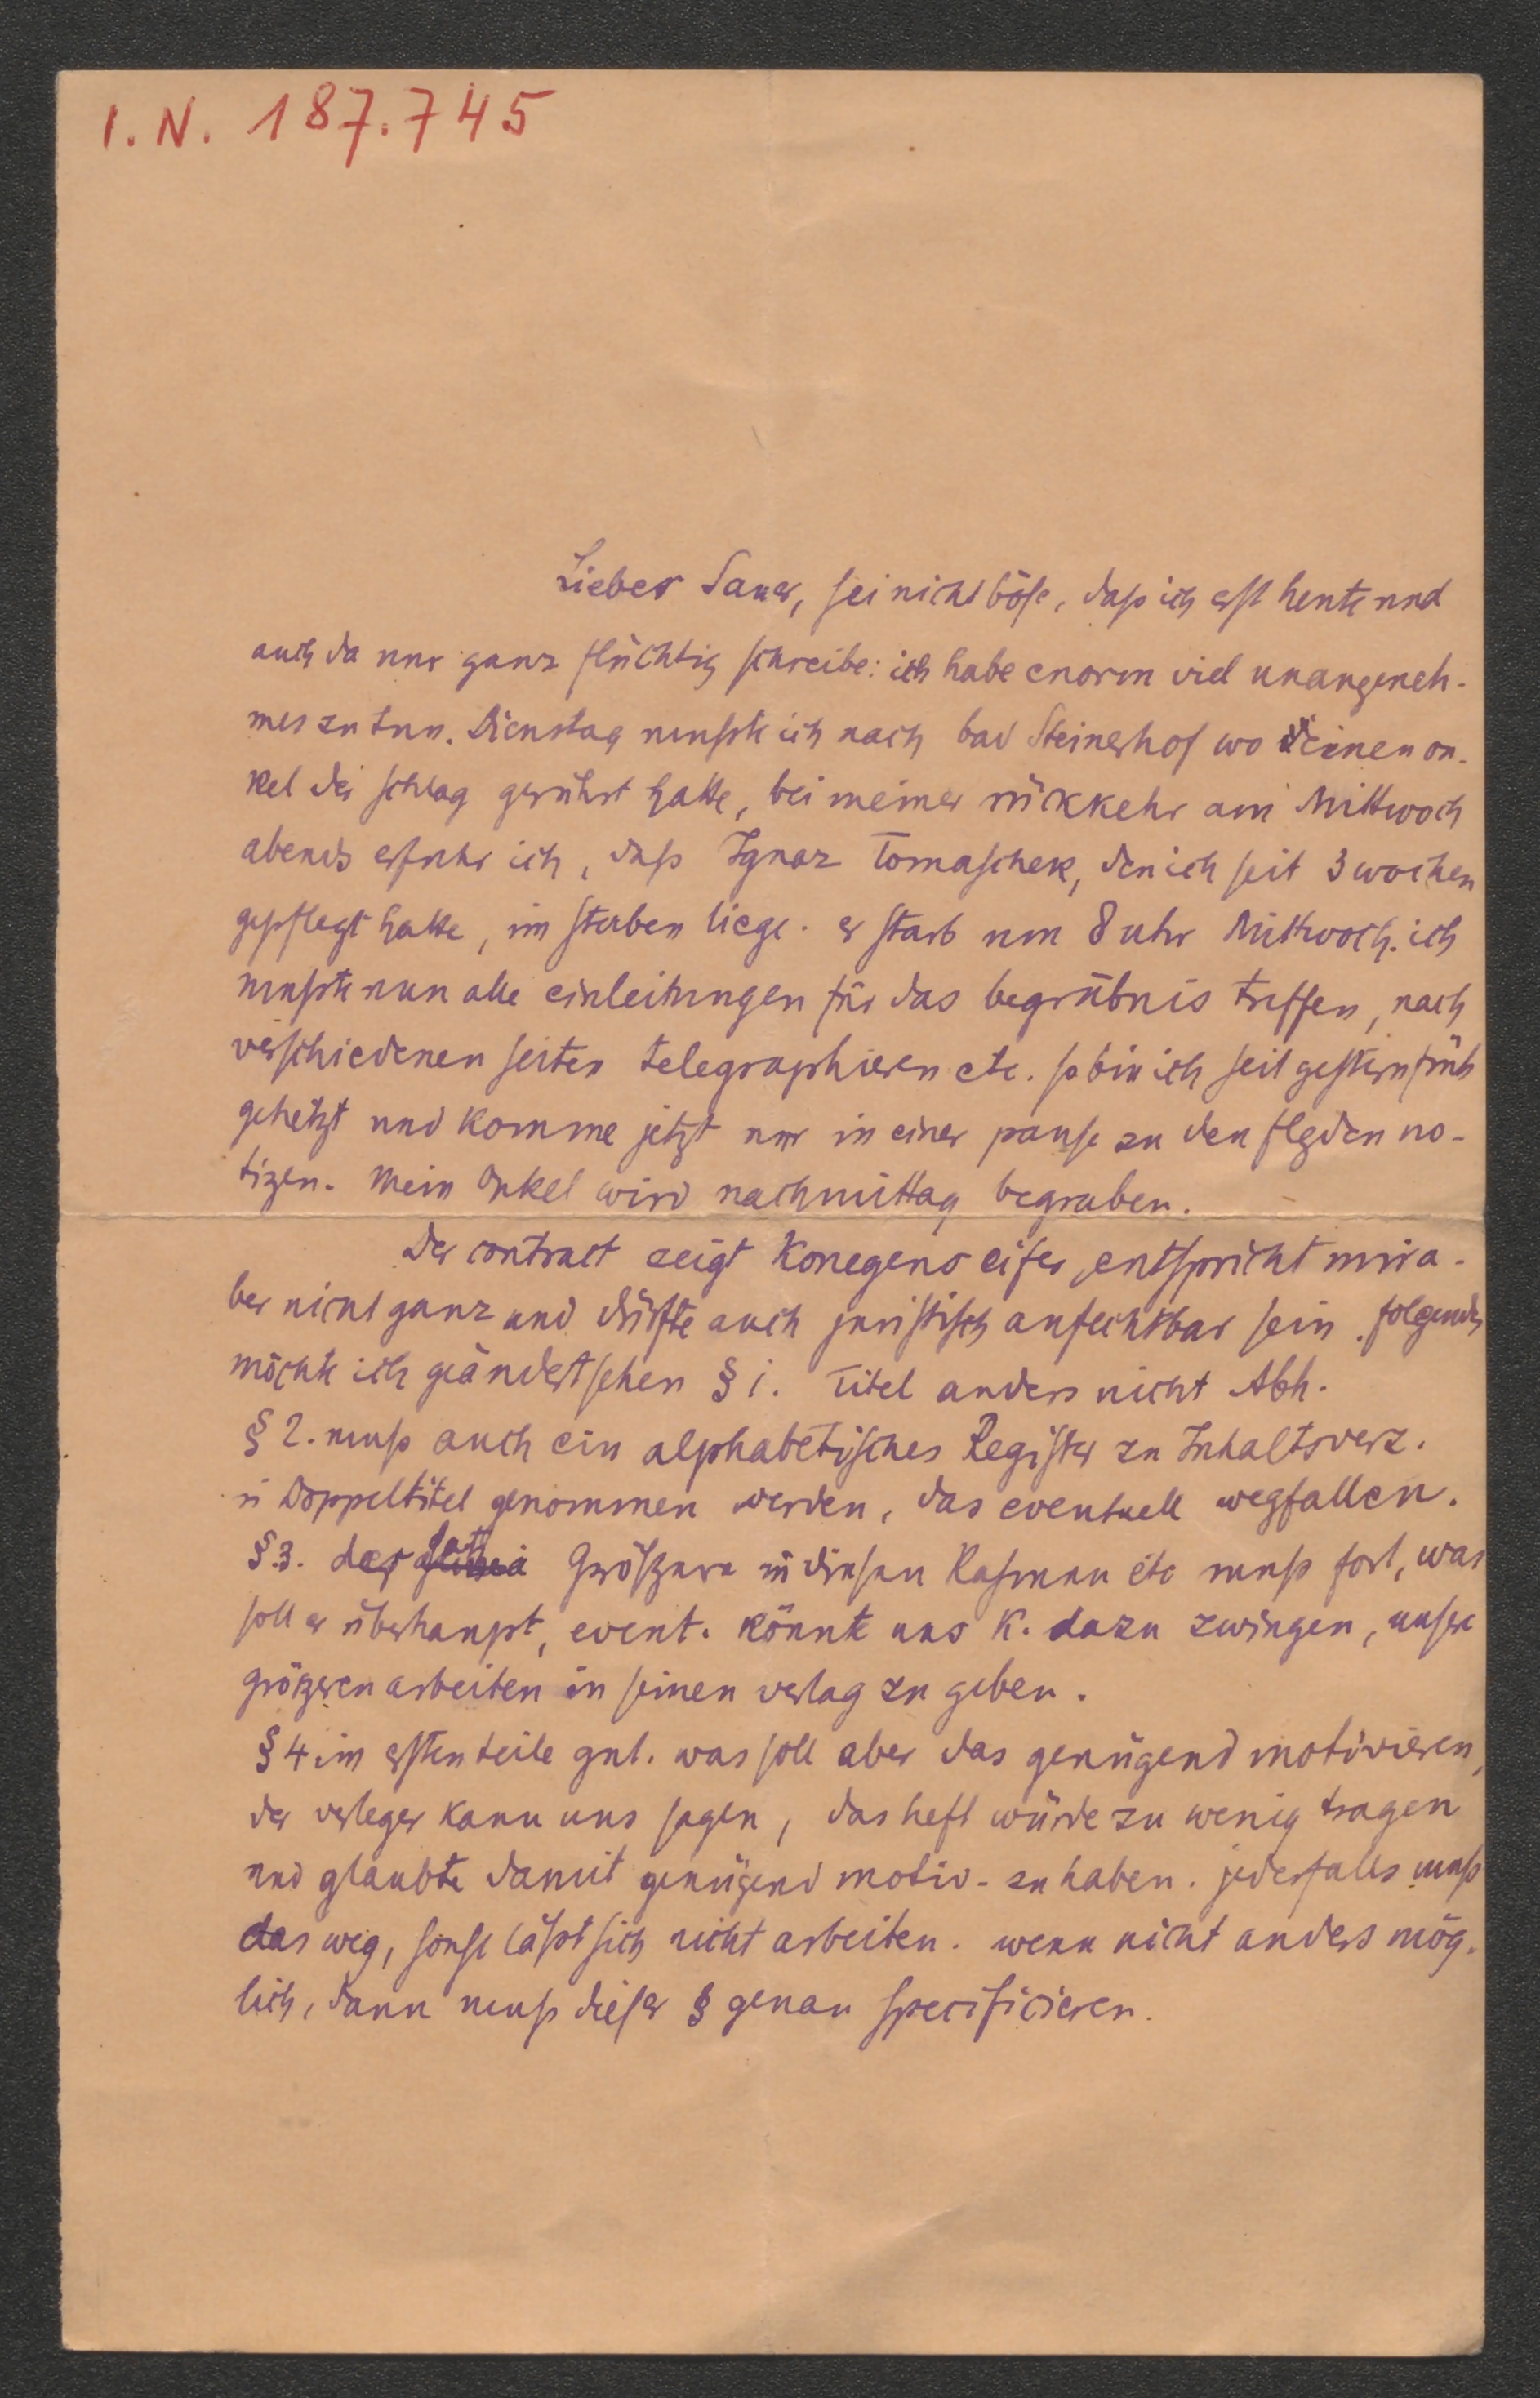 I. N. 187.745
Lieber Sauer, sei nicht böse, daß ich erst heute und
auch da nur ganz flüchtig schreibe: ich habe enorm viel unangeneh-
mes zu tun. Dienstag muste ich nach bad Steinerhof wo einen on-
kel der schlag gerührt hatte, bei meiner rückkehr am Mittwoch
abends erfuhr ich, daß Ignaz Tomaschek, den ich seit 3 wochen
gepflegt hatte, im sterben liege. er starb um 8 uhr Mittwoch. ich
muste nun alle einleitungen für das begräbnis treffen, nach
verschiedenen seiten telegraphieren etc. so bin ich seit gestern früh
gehetzt und komme jetzt nur in einer pause zu den flgden no-
tizen. Mein Onkel wird nachmittag begraben.
Der contract zeigt Konegens eifer, entspricht mir a-
ber nicht ganz und dürfte auch juristisch anfechtbar sein. folgendes
möchte ich geändert sehen § 1. Titel anders nicht Abh.
§ 2. muß auch ein alphabetisches Register zu Inhaltsverz.
u Doppeltitel genommen werden, das eventuell wegfallen.
§ 3. der Größere in diesen Rahmen etc muß fort, was
soll er überhaupt, event. könnte uns K. dazu zwingen, unsere
größeren arbeiten in seinen verlag zu geben.
§ 4 im ersten teile gut. was soll aber das genügend motivieren,
der verleger kann uns sagen, das heft würde zu wenig tragen
und glaubte damit genügend motiv. zu haben. jedesfalls muß
das weg, sonst läßt sich nicht arbeiten. wenn nicht anders mög-
lich, dann muß dieser § genau specificieren.